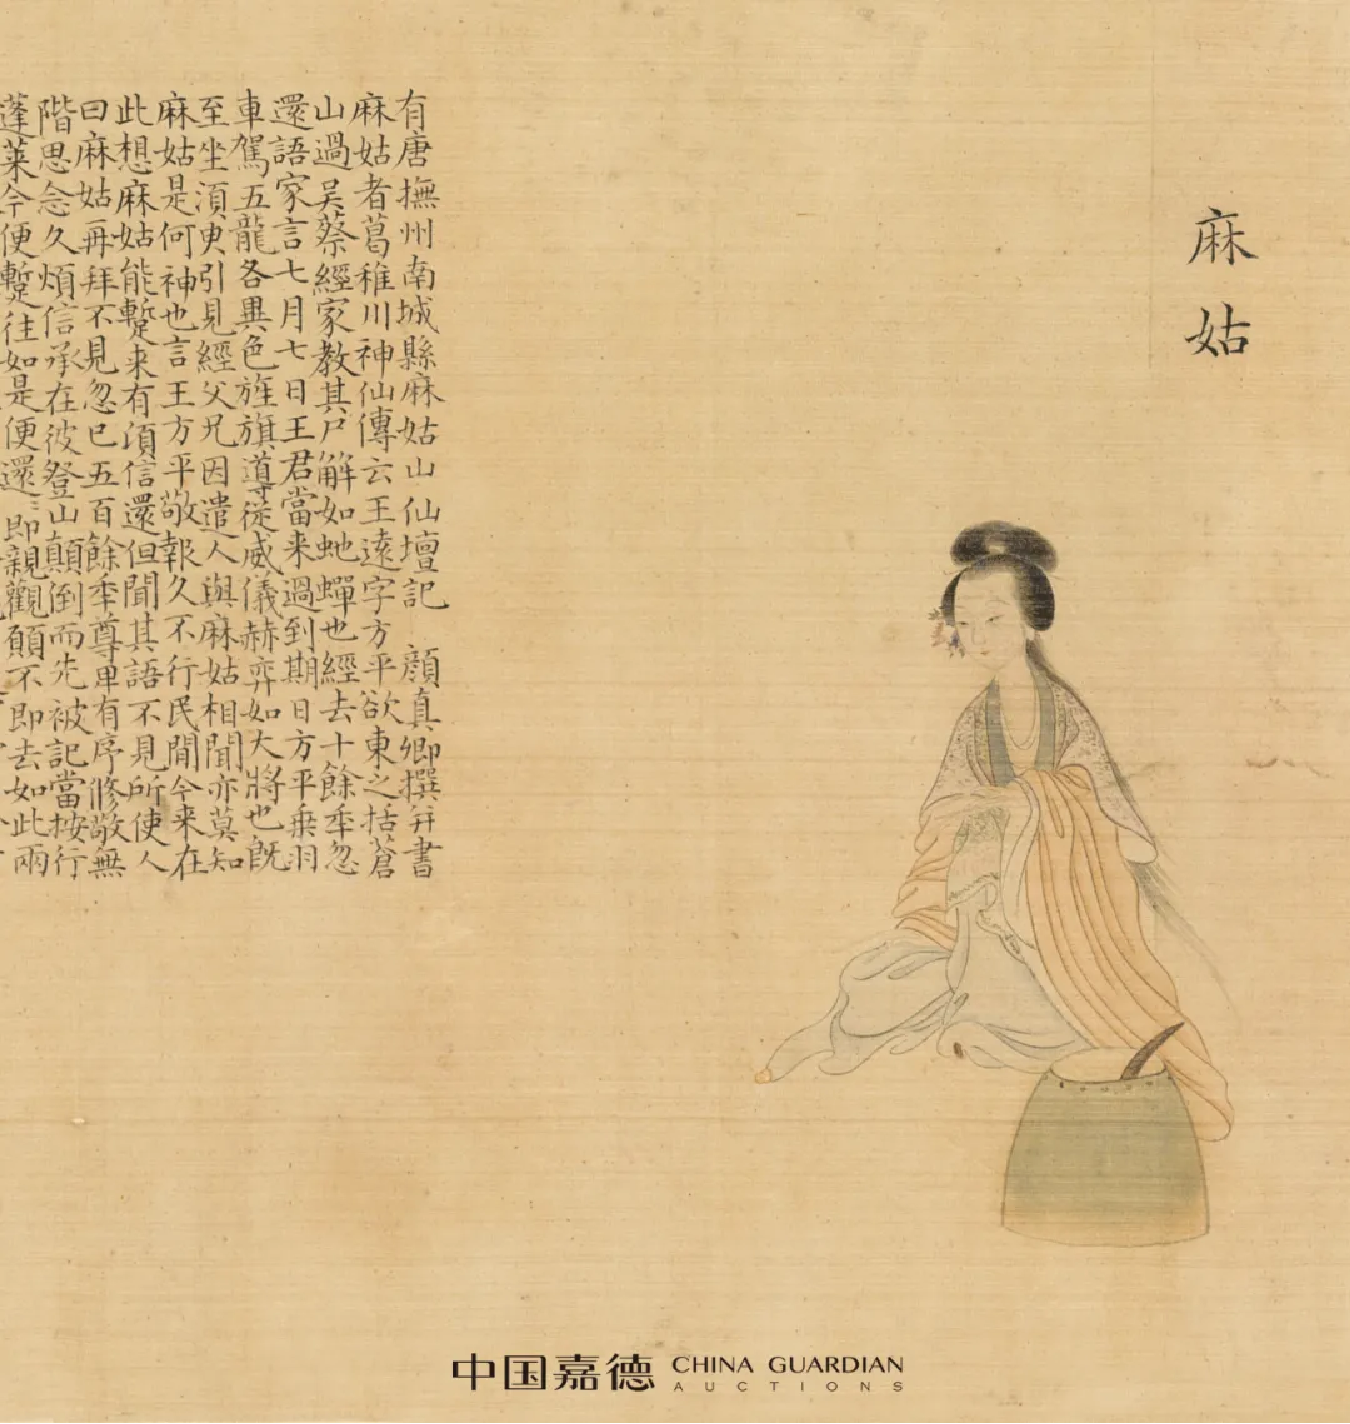 麻姑
有唐撫州南城縣麻姑山仙壇記 顏真卿撰并書
麻姑者葛稚川神仙傳云王遠字方平欲東之括蒼
山過吳蔡經家教其尸解如虵蟬也經去十餘秊忽
還語家言七月七日王君當来過到期日方平乗羽
車駕五龍各異色旌旗導從威儀赫弈如大將也旣
至坐湏臾引見經父兄因遣人與麻姑相聞亦莫知
麻姑是何神也言王方平敬報久不行民間今来在
此想麻姑能蹔来有湏信還但聞其語不見所使人
曰麻姑再拜不見忽已五百餘秊尊卑有序修敬無
階思念久煩信承在彼登山顛倒而先被記當按行
蓬萊今便蹔往如是便還〻即親觀願不即去如此兩
中国嘉德 CHINA GUARDIAN
AUCTIONS